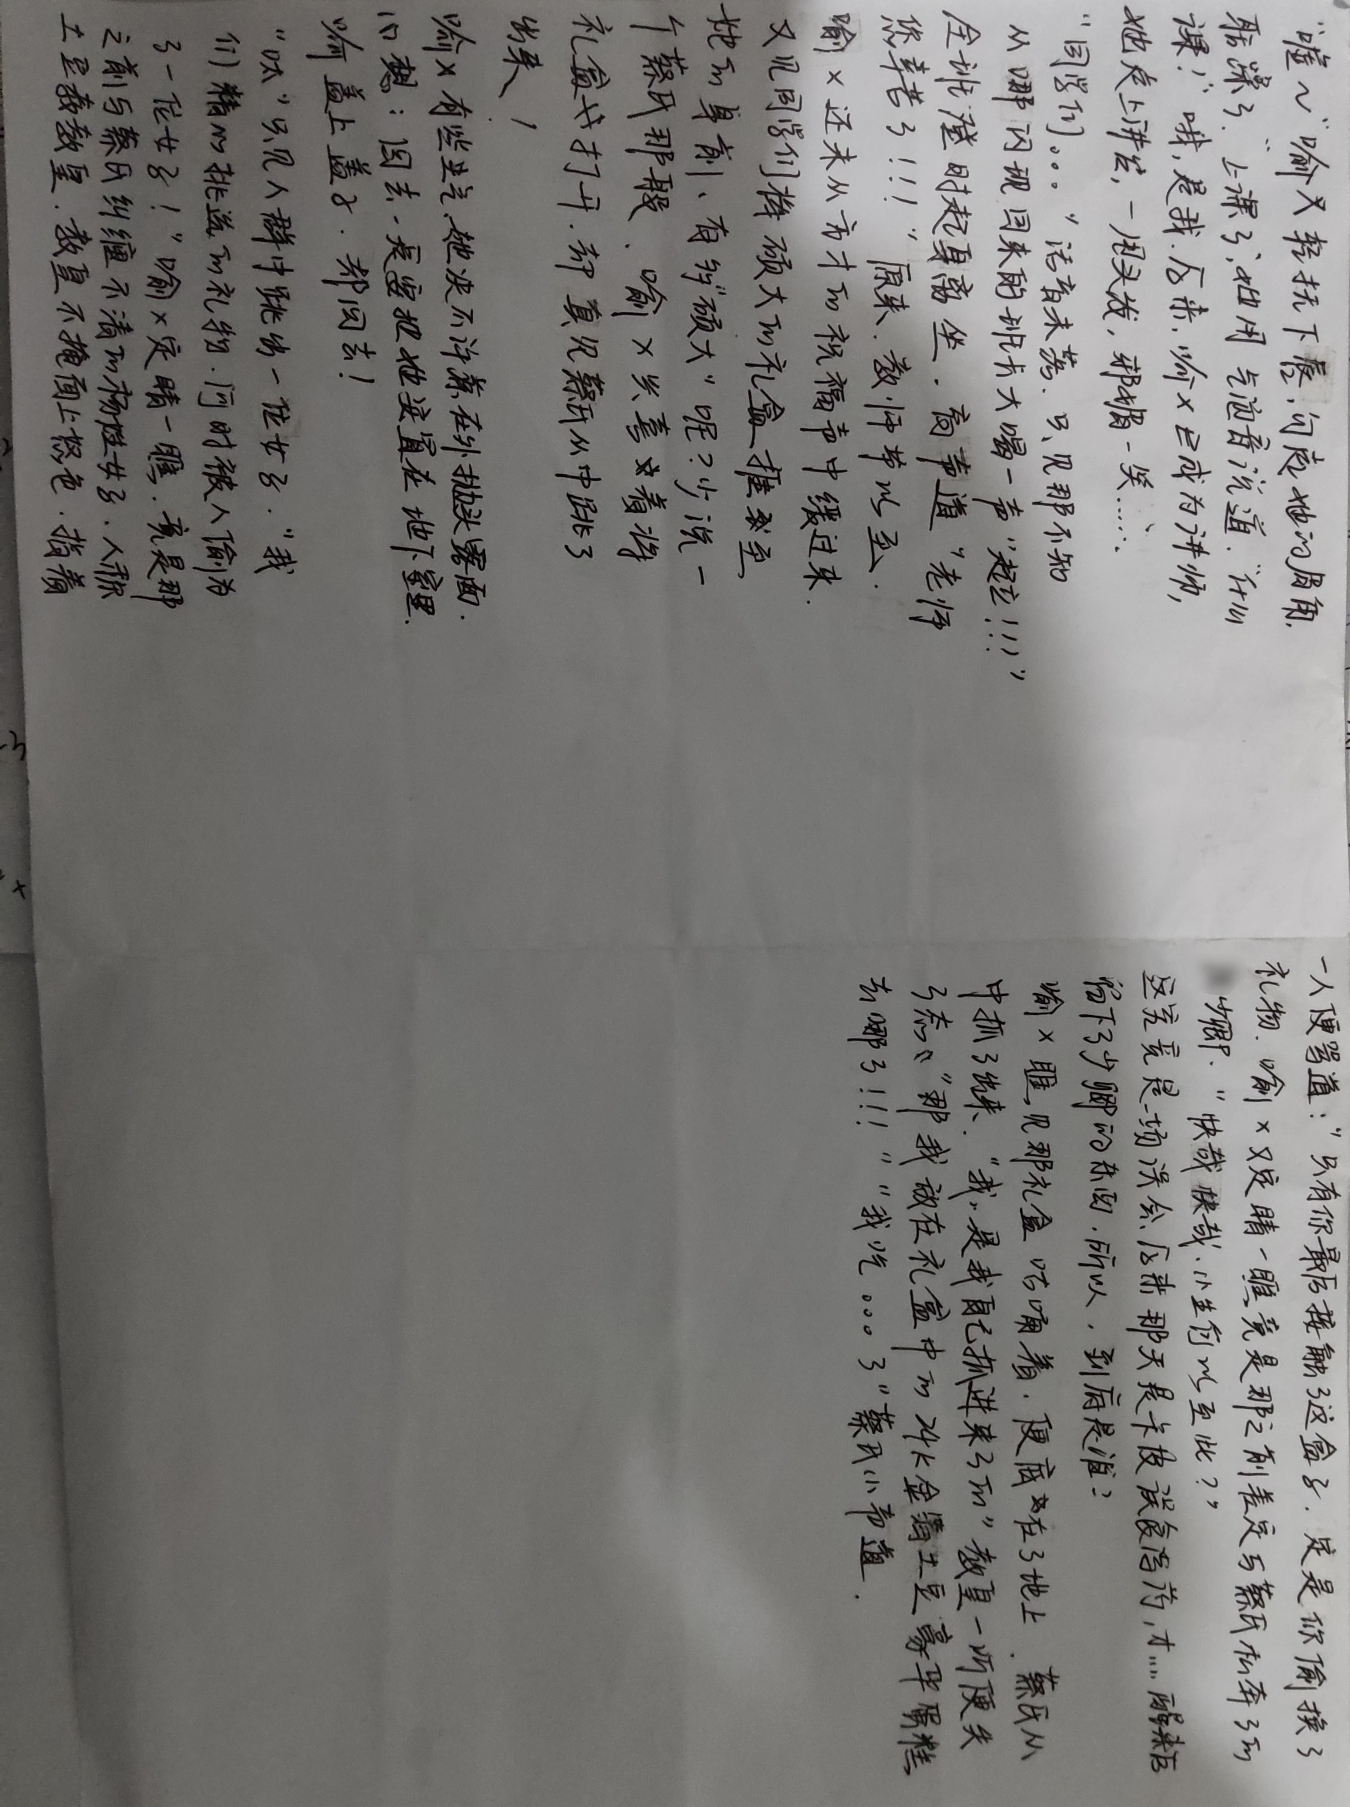 “嘘~”喻又轻抚下唇,勾起她的眉角,
聒噪了,“上课了,她用气泡音说道.“什么
课?”哦,是我.后来,喻×已成为讲师,
她走上讲台,一甩头发,邪媚一笑……
“同学们。。。”话音未落.只见那不知
从哪闪现回来的班长大喝一声“起立!!!”
全班澄时起身离坐.高声道“老师
您辛苦了!!!”原来.教师节以至.
喻×还未从方才的祝福声中缓过来.
又见同学们将硕大的礼盒推至
她的身前、有多“硕大”呢?少说一
个蔡氏那般.喻×兴喜着将
礼盒打开.却真见蔡氏从中跳了
出来!
喻×有些生气.她决不许蔡在外抛头露面.
心想:回去.定要把她安置在地下室里.
喻盖上盖子.都回去!
“呔”只见人群中跳出一位女子.“我
们精心挑选的礼物.何时被人偷为
了一位女子!”喻×定睛一瞧.竟是那
之前与蔡氏纠缠不清的杨姓女子.人称
土豆教皇.教皇不掩面上怒色.指着
一人便骂道:“只有你最后接触了这盒子.定是你偷换了
礼物.喻×又定睛一瞧竟是那之前差定与蔡氏私奔了的
少卿.“快哉快哉.小生何以至此?”
这究竟是一场误会.后来那天是卡皮误食治药,才……醒来后
留下了少卿的东西.所以,到底是谁?
喻×瞧见那礼盒咕噜着.便底在了地上.蔡氏从
中抓了出来.“我,是我自己抓进来了的”教皇一听便失
了态:“那我放在礼盒中的24k金镶土豆豪华蛋糕
去哪了!!!”“我吃。。。了”蔡氏小声道.